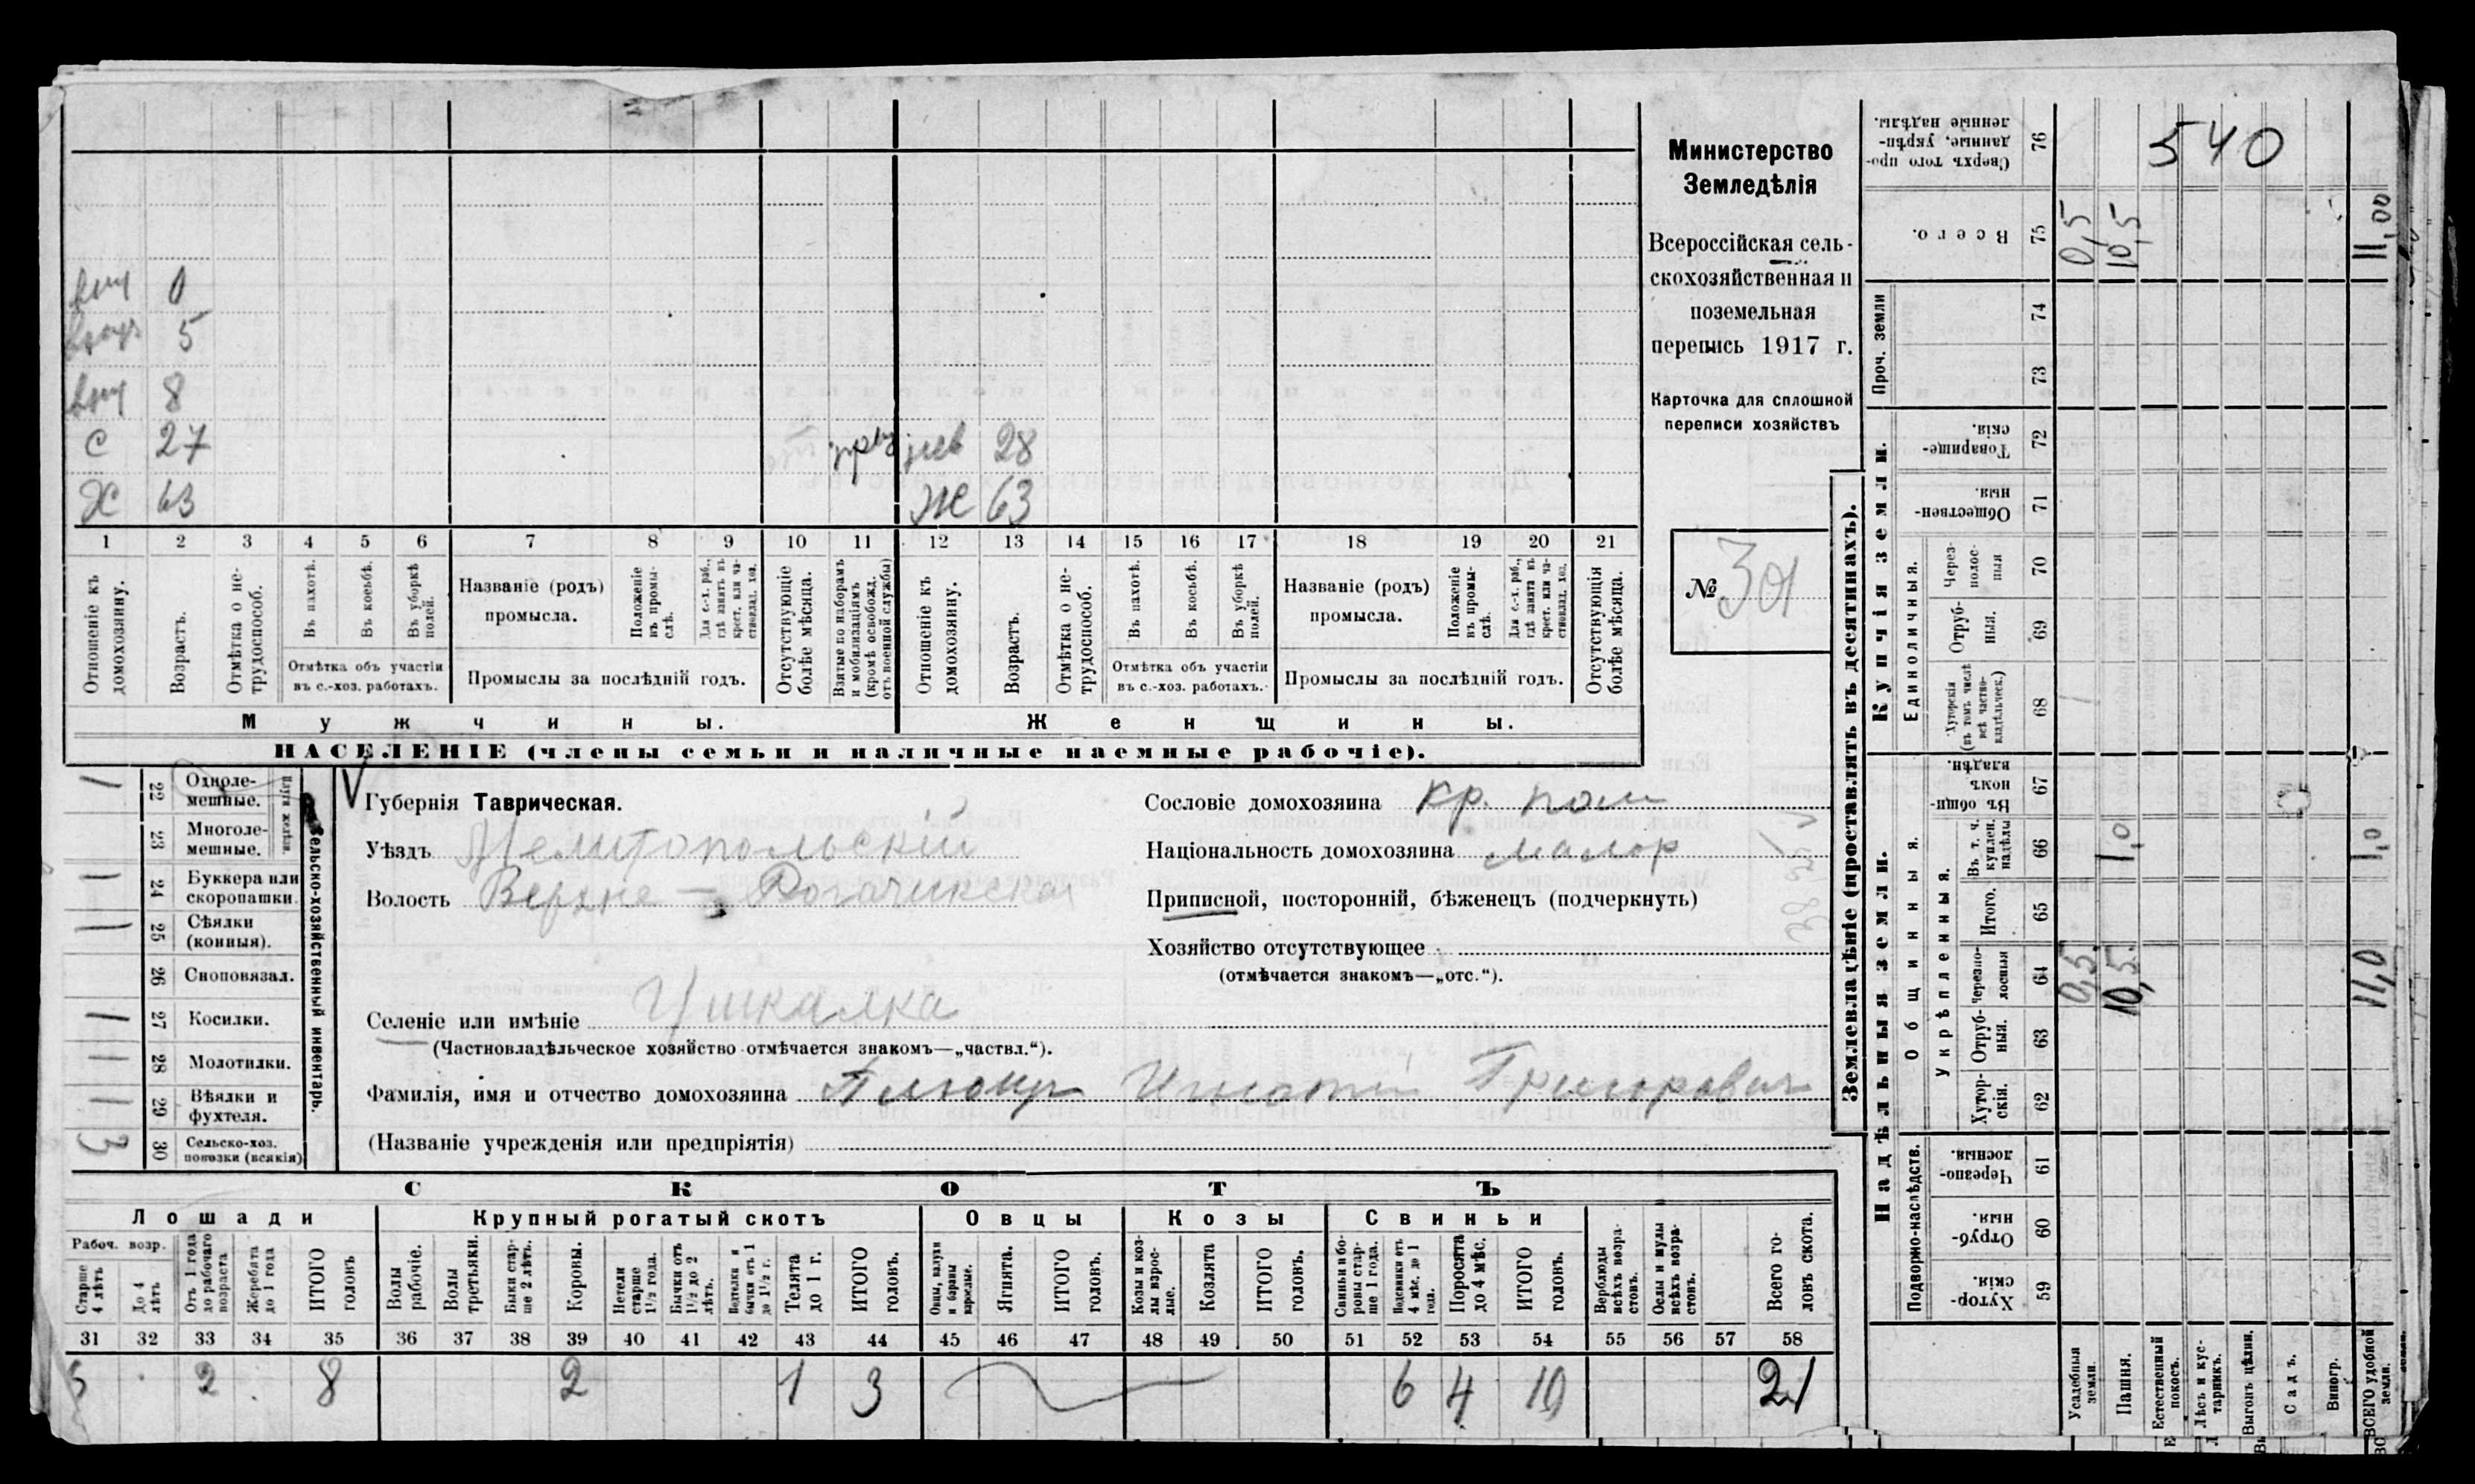 Министерство
Земледѣлія
Всероссійская сель-
скохозяйственная и
поземельная
перепись 1917 г.
Карточка для сплошной
переписи хозяйствъ
№
внч 0
5
внч 8
С 27
нев 28
Ж 63
1 2 3 4 5 6 7 8 9 10 11 12 13 14 15 16 17 18 19 20 21
Отношеніе къ домохозяину.
Возрастъ.
Отмѣтка о не-трудоспособ.
Въ пахотѣ.
Въ косьбѣ.
Въ уборкѣ полей.
Отмѣтка объ участіи
въ с.-хоз. работахъ.
Названіе (родъ)
промысла.
Положеніе въ промы-слѣ.
Для с.-х. раб., гдѣ занятъ въ крест. или ча-стновлад. хоз.
Промыслы за послѣдній годъ.
Отсутствующіе болѣе мѣсяца.
Взятые по наборамъ и мобилизаціямъ (кромѣ освобожд. отъ военной службы)
Отношеніе къ домохозяину.
Возрастъ.
Отмѣтка о не-трудоспособ.
Въ пахотѣ.
Въ косьбѣ.
Въ уборкѣ полей.
Отмѣтка объ участіи
въ с.-хоз. работахъ.
Названіе (родъ)
промысла.
Положеніе въ промы-слѣ.
Для с.-х. раб., гдѣ занята въ крест. или ча-стновлад. хоз.
Промыслы за послѣдній годъ.
Отсутствующія болѣе мѣсяца.
Мужчины.
Женщины.
НАСЕЛЕНІЕ (члены семьи и наличные наемные рабочіе).
Сельско-хозяйственный инвентарь.
1 22 Одноле-мешные.
23 Многоле-мешные.
1 24 Буккера или скоропашки.
1 25 Сѣялки (конныя).
26 Сноповязал.
1 27 Косилки.
1 28 Молотилки.
1 29 Вѣялки и фухтеля.
3 30 Сельско-хоз. повозки (всякія)
Губернія Таврическая.
Уѣздъ Мелитопольскій
Волость Верхне-Рогачикская
Селеніе или имѣніе Ушкалка
(Частновладѣльческое хозяйство отмѣчается знакомъ—„частвл.“).
Фамилія, имя и отчество домохозяина Игнатій Григорович
(Названіе учрежденія или предпріятія)
Сословіе домохозяина кр. пос
Національность домохозяина малор
Приписной, посторонній, бѣженецъ (подчеркнуть)
Хозяйство отсутствующее
(отмѣчается знакомъ—„отс.“).
СКОТЪ
Лошади
Крупный рогатый скотъ
Овцы
Козы
Свиньи
Рабоч. возр.
Старше 4 лѣтъ
До 4 лѣтъ
Отъ 1 года до рабочаго возраста
Жеребята до 1 года
ИТОГО головъ
Волы рабочіе.
Волы третьяки.
Быки стар-ше 2 лѣтъ.
Коровы.
Нетели старше 1½ года.
Бычки отъ 1½ до 2 лѣтъ.
Нетелки и бычки отъ 1 до 1½ г.
Телята до 1 г.
ИТОГО головъ.
Овцы, валухи и бараны взрослые.
Ягнята.
ИТОГО головъ.
Козы и коз-лы взрос-лые.
Козлята
ИТОГО головъ.
Свиньи и бо-ровы стар-ше 1 года.
Подсвинки отъ 4 мѣс. до 1 года.
Поросята до 4 мѣс.
ИТОГО головъ.
Верблюды всѣхъ возра-стовъ.
Ослы и мулы всѣхъ возра-стовъ.
Всего го-ловъ скота.
31 32 33 34 35 36 37 38 39 40 41 42 43 44 45 46 47 48 49 50 51 52 53 54 55 56 57 58
2 8 2 1 3 6 4 10 21
Землевладѣніе (проставлять въ десятинахъ).
Надѣльныя земли.
Купчія земли.
Проч. земли
Подворно-наслѣдств.
Общинныя.
Укрѣпленныя.
Единоличныя.
59 Хутор-скія
60 Отруб-ныя
61 Черезпо-лосныя.
62 Хутор-скія.
63 Отруб-ныя.
64 Черезпо-лосныя
65 Итого.
66 Въ т. ч. куплен. надѣлы
67 Въ общи-номъ владѣн.
68 Хуторскія (въ томъ числѣ всѣ частно-владѣльческ.)
69 Отруб-ныя.
70 Через-полос-ныя
71 Обществен-ныя.
72 Товарище-скія.
73
74
75 Всего.
76 Сверхъ того про-данные, укрѣп-ленные надѣлы.
Усадебныя земли. 0,5 0,5
Пашня. 10,5 1,0 10,5
Естественный покосъ.
Лѣсъ и кус-тарникъ.
Выгонъ цѣлин.
Садъ.
Виногр.
ВСЕГО удобной земли. 11,0 1,0 11,00
540